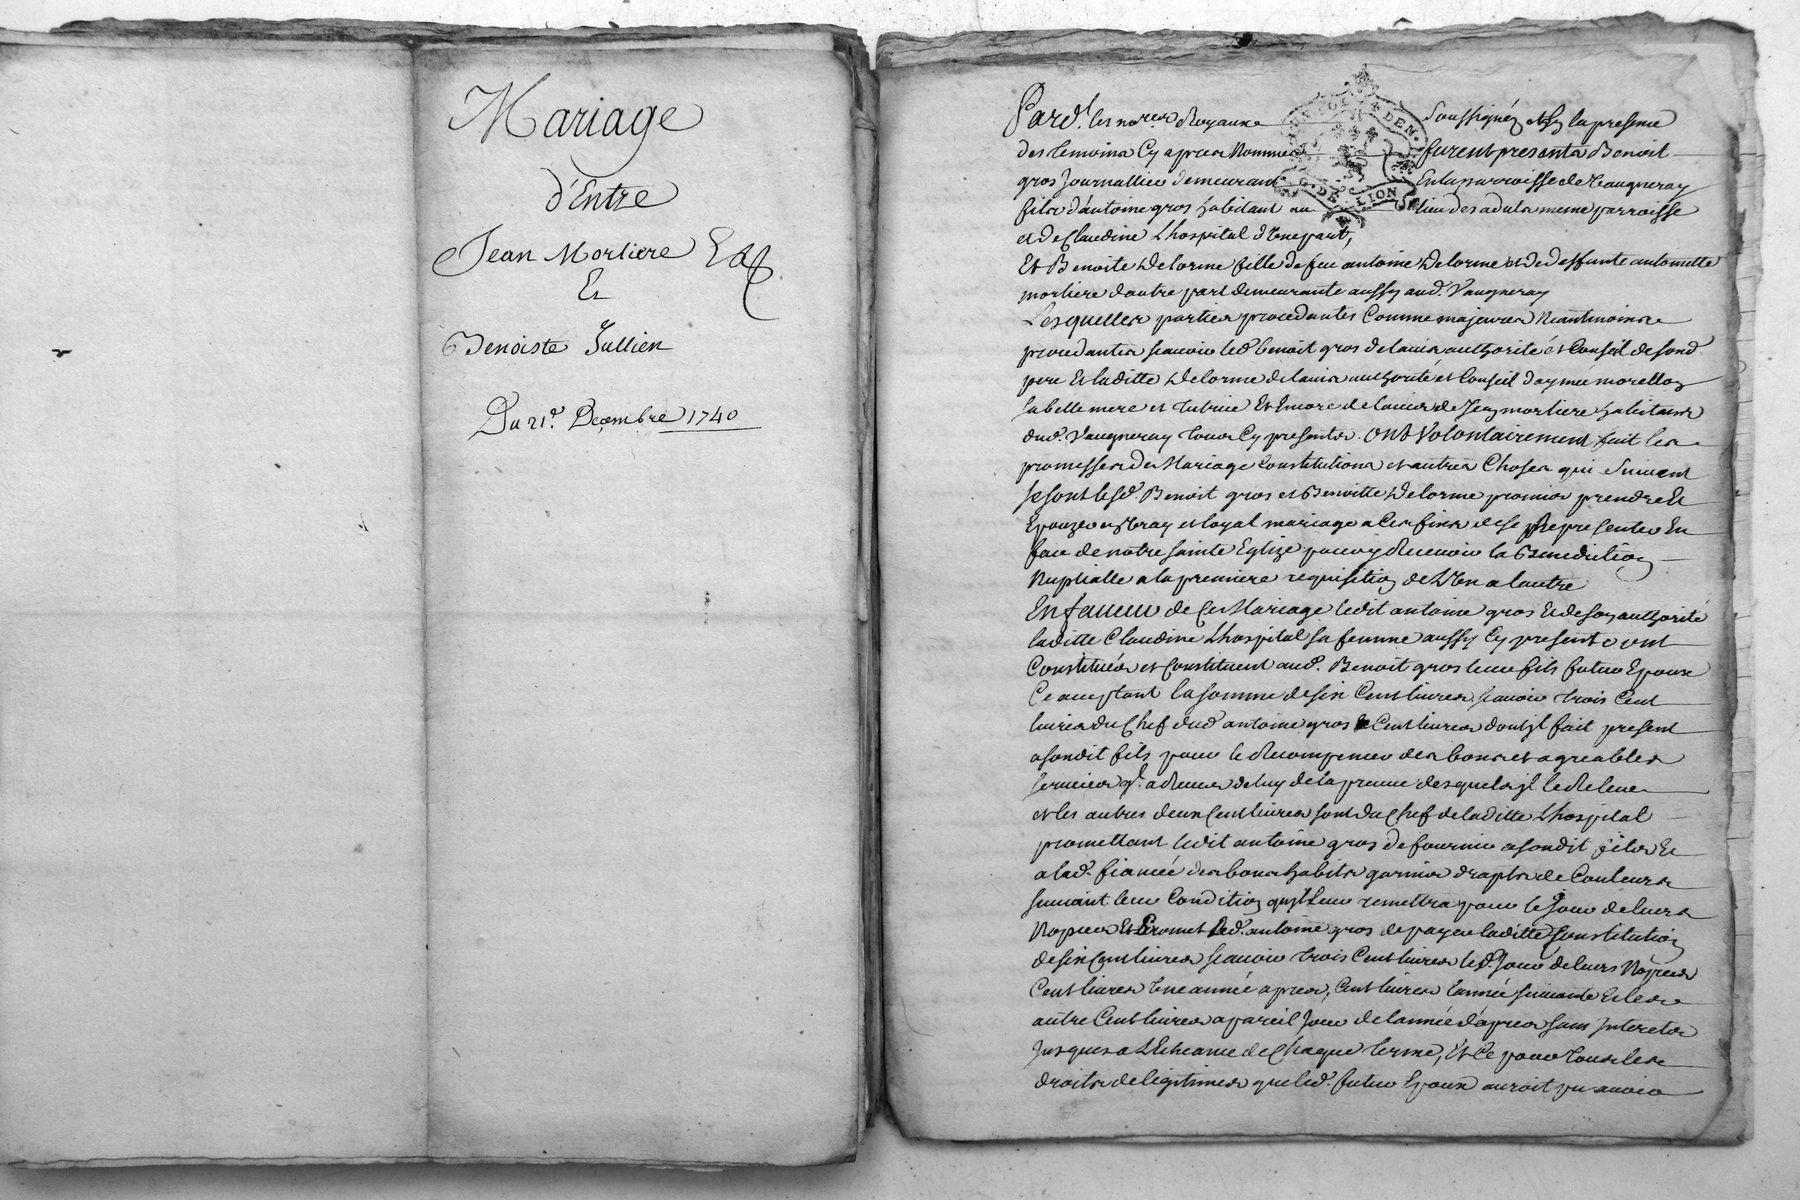 Mariage
d'Entre
Jean Morliere
Et
Benoiste Jullien
Du 21e. Decembre 1740
GEN. DE LION
Pard.t les no.res Royaux soussignéz et En la presence
des temoins Cy apres Nommes furent presents Benoit
gros Journallier demeurant En la parroisse de Vaugneray
fils d'antoine gros habitant au lieu des aduts meme parroisse
et de Claudine Lhospital d'Une part,
Et Benoite Delorme fille de feu antoine Delorme et de deffunte antoinette
morliere d'autre part demeurante aussy aud. Vaugneray
Lesquelles parties procedantes Comme majeures Neantmoins
procedantes scauoir led. benoit gros de lauis authorité et Conseil de sond.
pere Et laditte Delorme de lauis authorité et Conseil d'aymée morellon
sa belle mere et tutrice Et Encore de lauis de Jean morliere habitant
dud. Vaugneray tous Cy presents. ont Volontairement fait les
promesses de Mariage Constitutions et autres Choses qui suiuent
se sont lesd. Benoit gros et Benoitte Delorme promis prendre Et
Epouzer en Vray et loyal mariage a Ces fins de se representer En
face de notre sainte Eglize pour y Receuoir la Benediction
Nuptialle a la premiere requisition de L'Un a lautre
En faueur de Ce Mariage ledit antoine gros Et de son authorité
laditte Claudine Lhospital sa femme aussy Cy presente ont
Constitués et Constituent aud. Benoit gros leur fils futur Epoux
Ce acceptant la somme de six Cent liures scauoir trois Cent
liures du Chef dud. antoine gros Cent liures dont jl fait present
a sondit fils pour le Recompencer des bons et agreables
seruices q'l a Receus de luy de la preuue desquels jl le Releue
et les autres deux Cent liures sont du Chef de laditte Lhospital
promettant ledit antoine gros de fournir a sondit fils Et
a lad. fiancée des bons habits garnis draps de Couleurs
suiuant leur Condition qu'jl leur remettra pour le Jour de leurs
Nopces Et Promet led. antoine gros de payer laditte Constitution
de six Cent liures scauoir trois Cent liures led. Jour de leurs Nopces
Cent liures Une année apres, Cent liures lannée suiuante Et les
autre Cent liures a pareil Jour de lannée d'apres sans Interets
Jusques a L'Echeance de Chaque terme, Et Ce pour tous les
droits de legitimes que led. futur Epoux auroit pu auoir